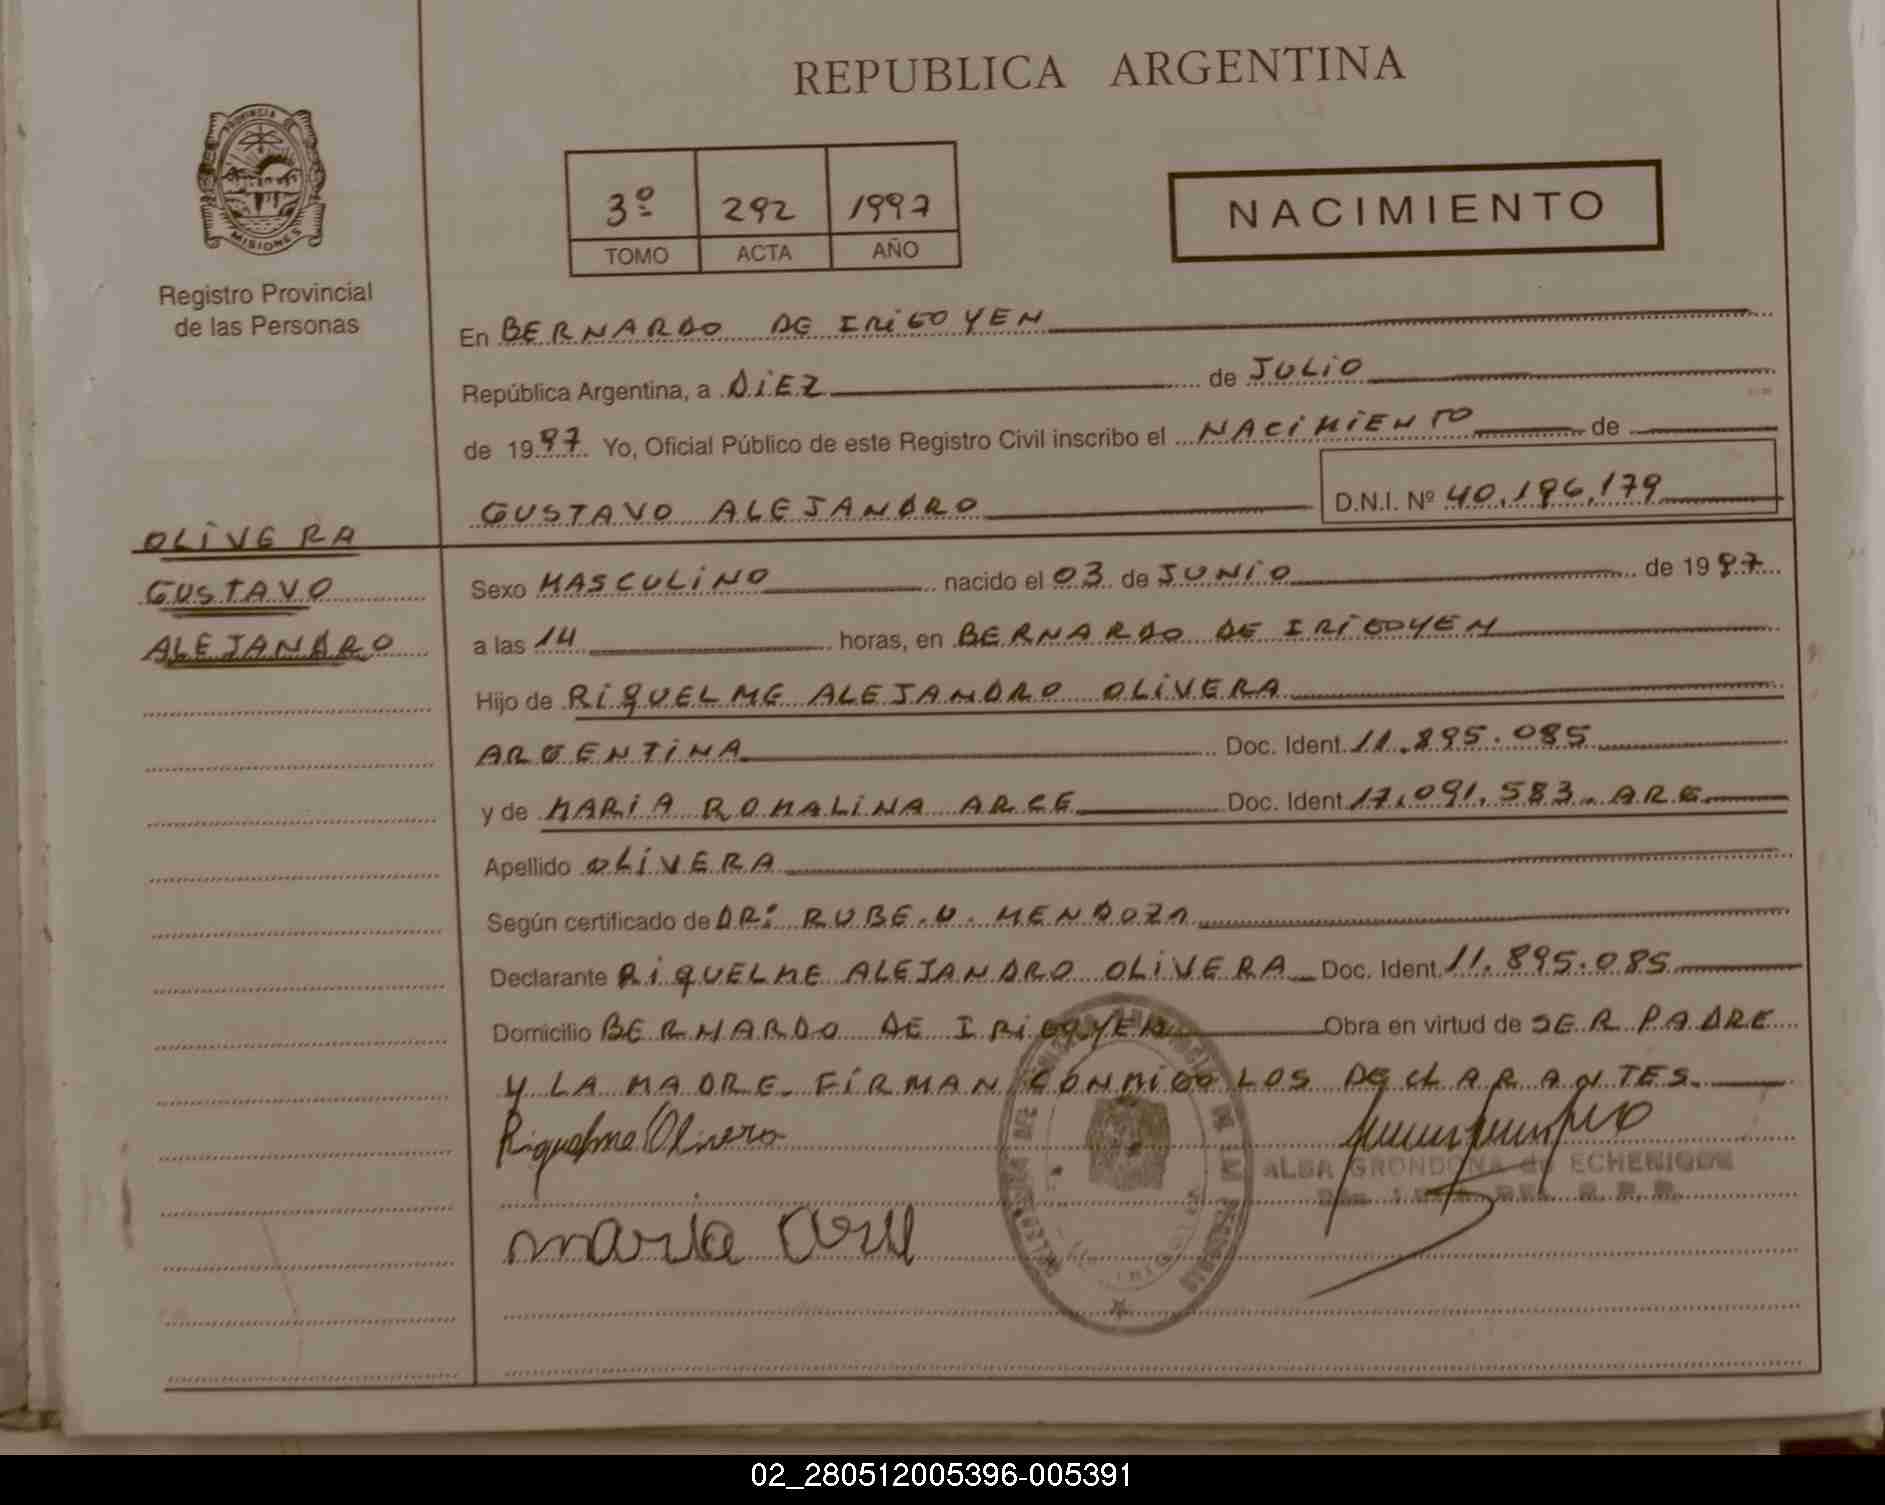 REPUBLICA ARGENTINA
PROVINCIA DE
MISIONES
Registro Provincial
de las Personas
3º 292 1997
TOMO ACTA AÑO
NACIMIENTO
En BERNARDO DE IRIGOYEN
República Argentina, a DIEZ de JULIO
de 1997 Yo, Oficial Público de este Registro Civil inscribo el NACIMIENTO de
GUSTAVO ALEJANDRO D.N.I. Nº 40.196.179
OLIVERA
GUSTAVO
ALEJANDRO
Sexo MASCULINO nacido el 03 de JUNIO de 1997
a las 14 horas, en BERNARDO DE IRIGOYEN
Hijo de RIQUELME ALEJANDRO OLIVERA
ARGENTINA Doc. Ident. 11.895.085
y de MARIA ROMALINA ARCE Doc. Ident. 17.091.583. ARG.
Apellido OLIVERA
Según certificado de DR: RUBE.N. MENDOZA
Declarante RIQUELME ALEJANDRO OLIVERA Doc. Ident. 11.895.085
Domicilio BERNARDO DE IRIGOYEN Obra en virtud de SER PADRE
Y LA MADRE. FIRMAN CONMIGO LOS DECLARANTES.
Riquelme Olivera
ALBA GRONDONA de ECHENIQUE
maria Arce
02_280512005396-005391